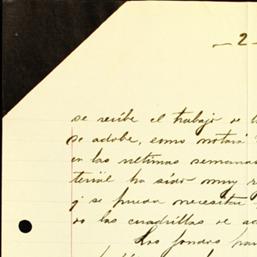 - 2
se recibe el trabajo de l
de adobe, como notará
en las ultimas semanas
terial ha sido muy r
q se pueda necesitar
do las cuadrillas de a
Los fondos par